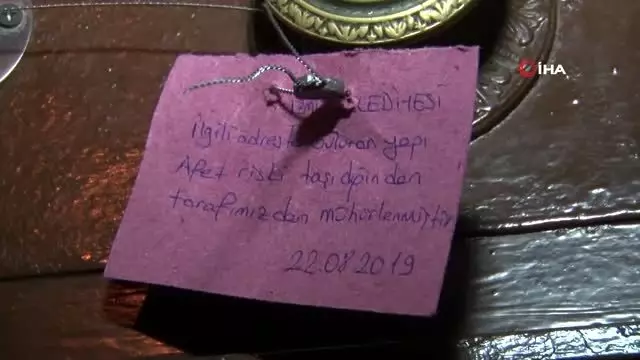 İHA
LEDİYESİ
ilgili adreste bulunan yapı
Afet riski taşıdığından
tarafımızdan mühürlenmiştir
22.08.2019